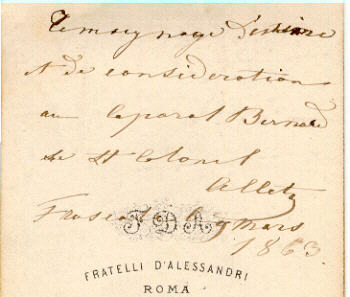 Temoignage d'estime
et de consideration
au Caporal Bernard
Le Lt Colonel
Allet
Frascati 9 mars
1863.
FDA
FRATELLI D'ALESSANDRI
ROMA